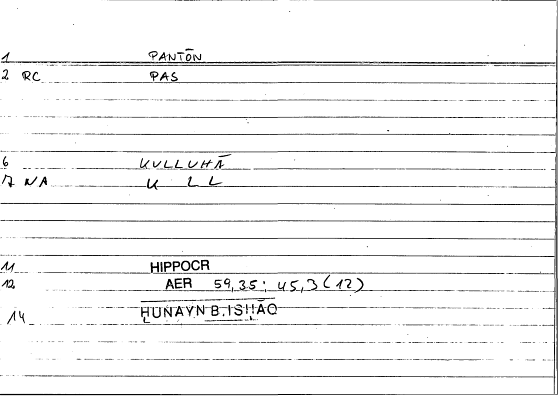 1 PANTŌN
2 RC PAS
6 KULLUHĀ
7 NA K L L
11 HIPPOCR
12 AER 59,35: 45,3(12)
14 ḤUNAYN B. ISḤĀQ